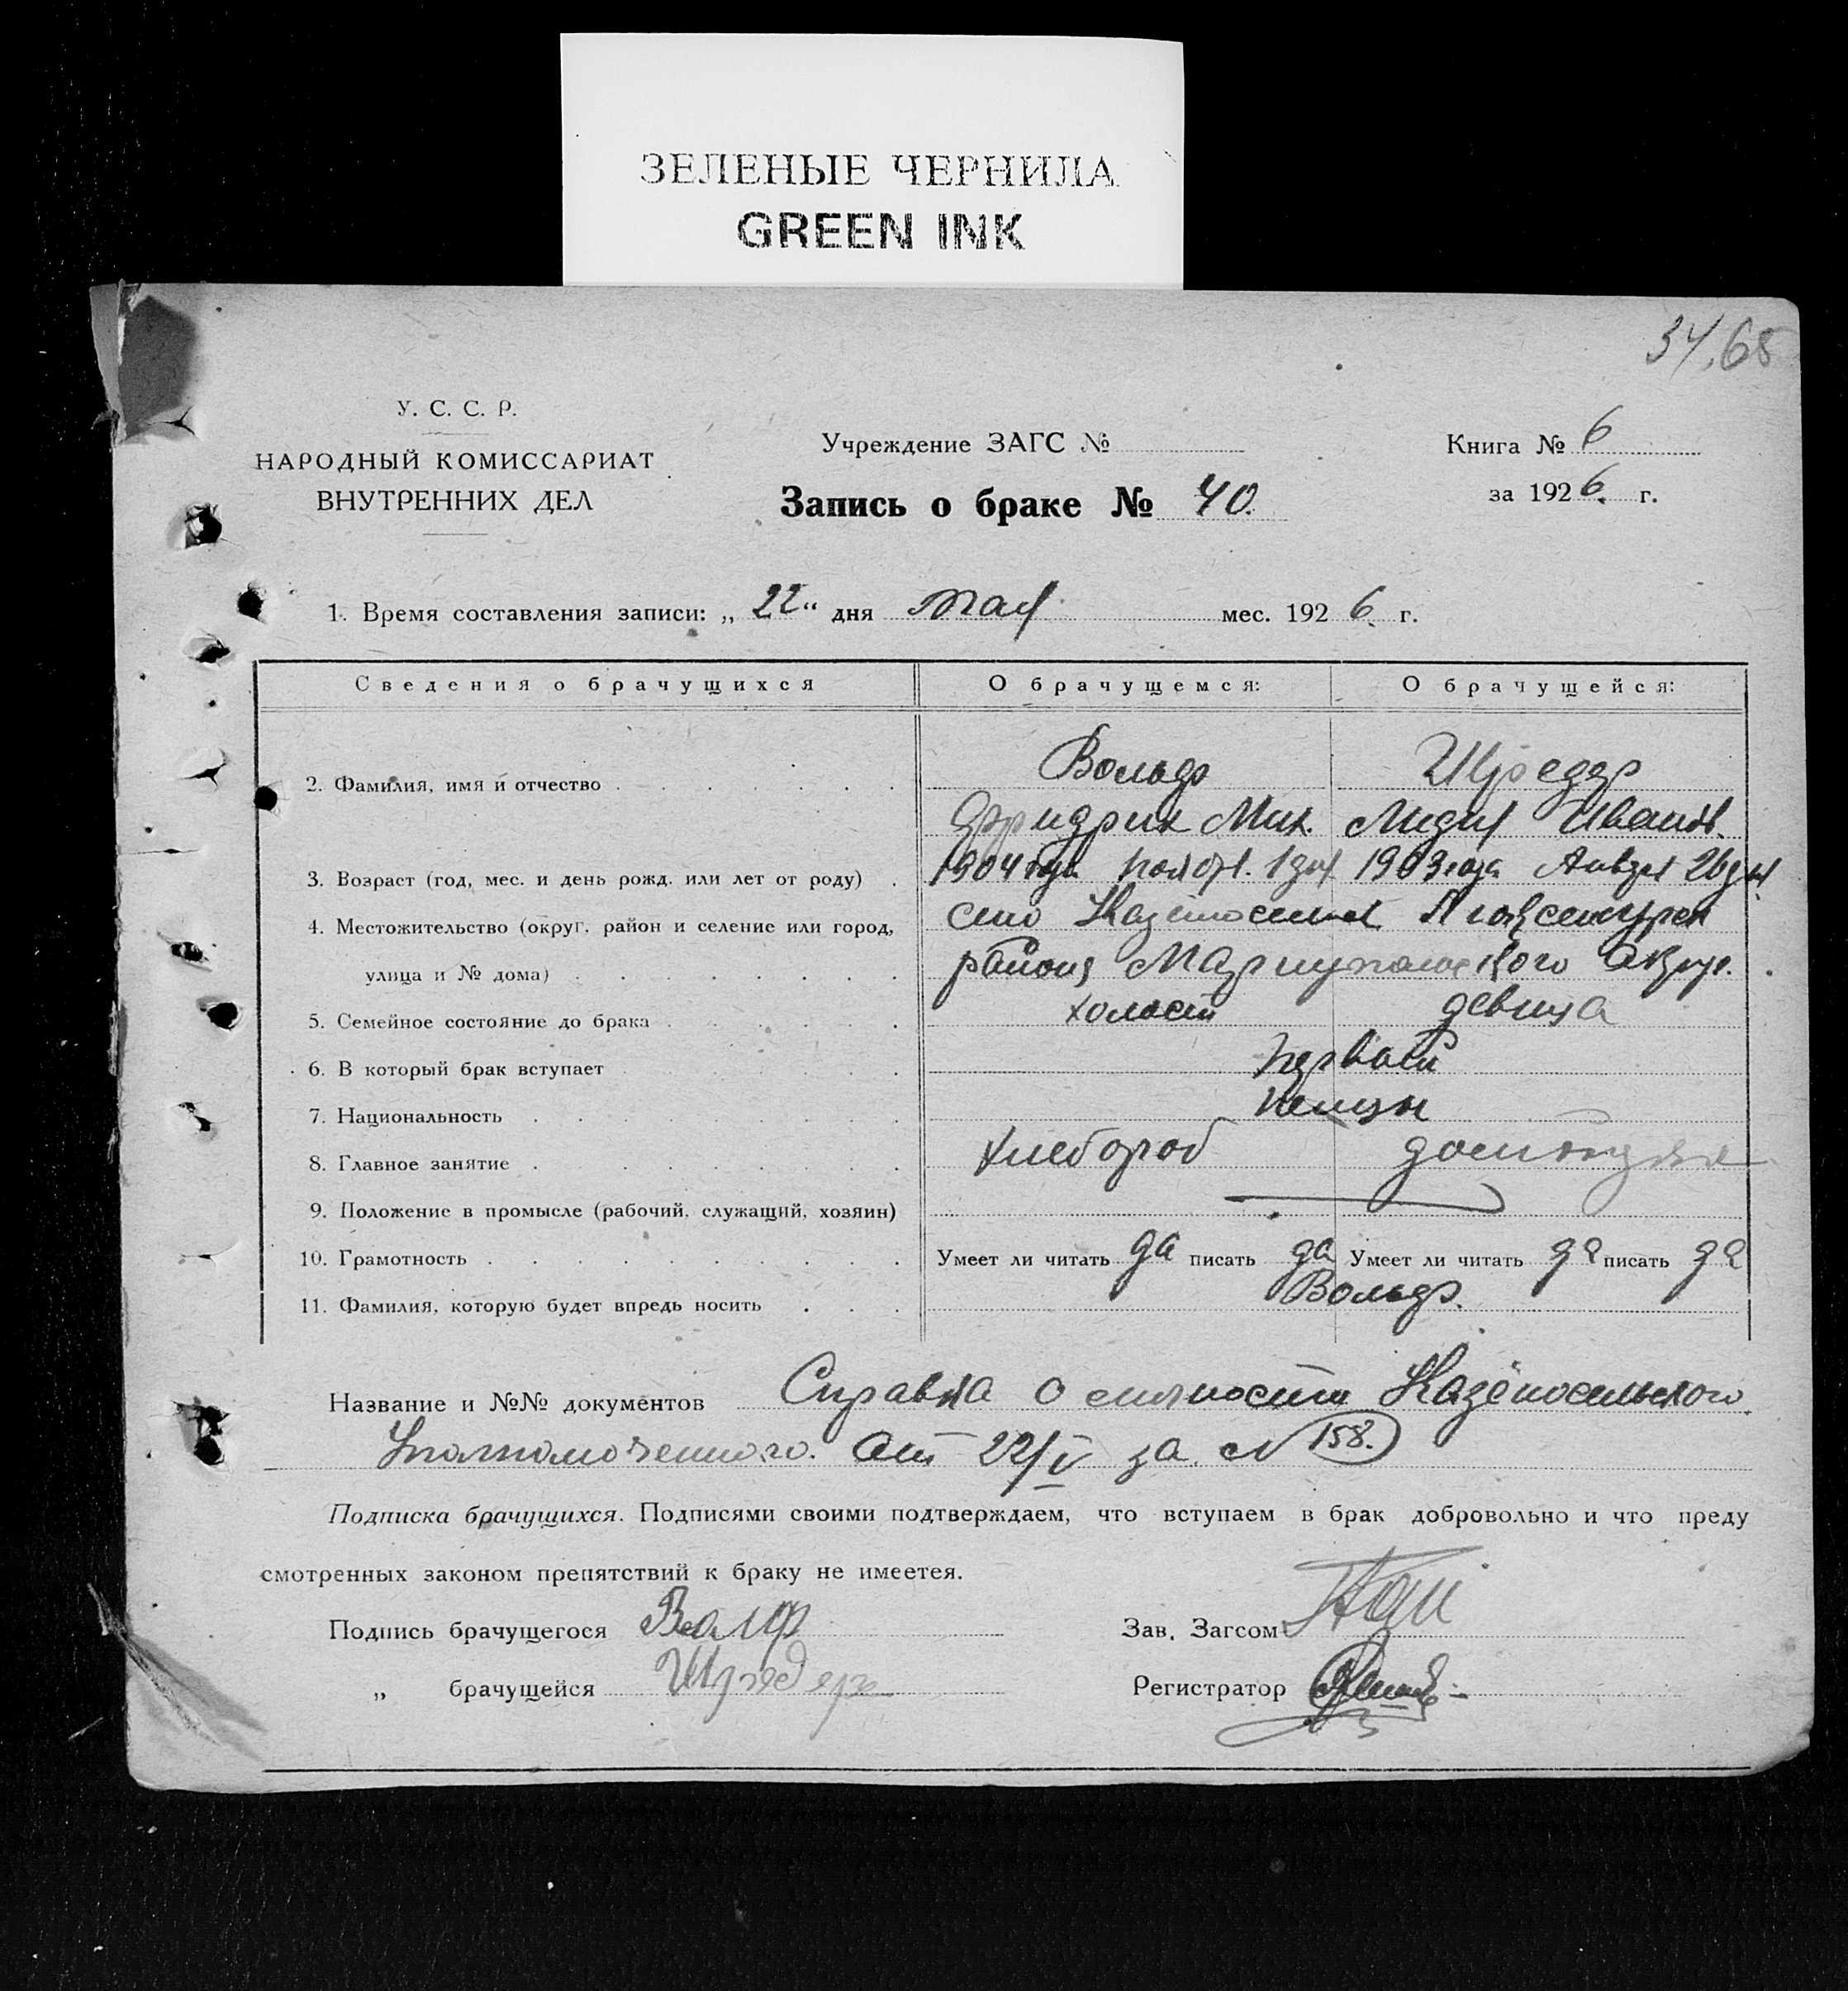 ЗЕЛЕНЫЕ ЧЕРНИЛА
GREEN INK
34.
У. С. С. Р.
НАРОДНЫЙ КОМИССАРИАТ
ВНУТРЕННИХ ДЕЛ
Учреждение ЗАГС №
Запись о браке № 40.
Книга № 6
за 1926. г.
1. Время составления записи: „ 22 “ дня мая мес. 1926. г.
Сведения о брачущихся О брачущемся: О брачущейся:
2. Фамилия, имя и отчество Вольф Шредер
Фридрих Мих. Лидия Иванов.
3. Возраст (год, мес. и день рожд. или лет от роду) 1904 года Ноябр. 1 дня 1903 года Января 26 дня
4. Местожительство (округ, район и селение или город, село
улица и № дома) района Мариупольского Округ.
5. Семейное состояние до брака холост девица
6. В который брак вступает первый
7. Национальность немцы
8. Главное занятие хлебороб
9. Положение в промысле (рабочий, служащий, хозяин)
10. Грамотность Умеет ли читать да писать да Умеет ли читать да писать да
11. Фамилия, которую будет впредь носить Вольф.
Название и №№ документов Справка о личности
Уполномоченного. от 22/V за N 158.
Подписка брачущихся. Подписями своими подтверждаем, что вступаем в брак добровольно и что преду
смотренных законом препятствий к браку не имеетея.
Подпись брачущегося Волф
Зав. Загсом
„ брачущейся Шредер
Регистратор